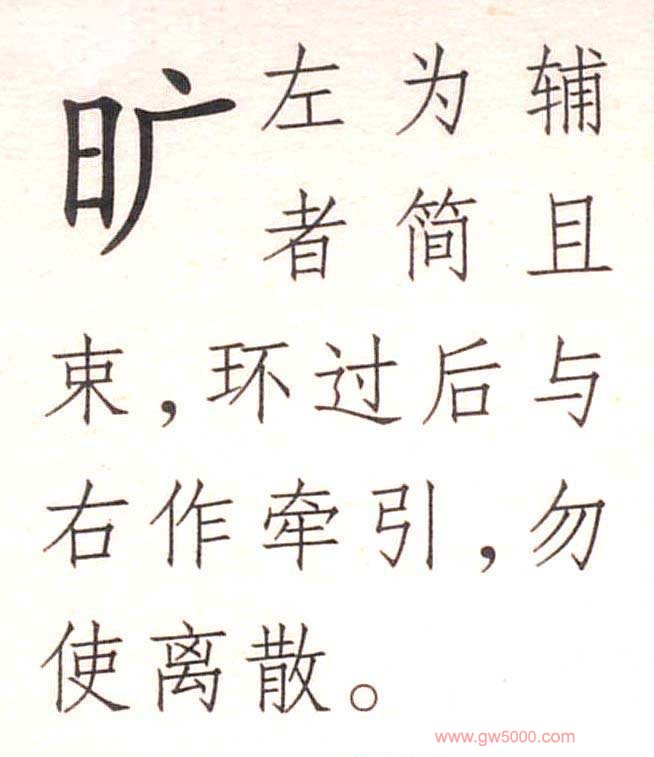 旷 左为辅
者简且
束，环过后与
右作牵引，勿
使离散。
www.gw5000.com